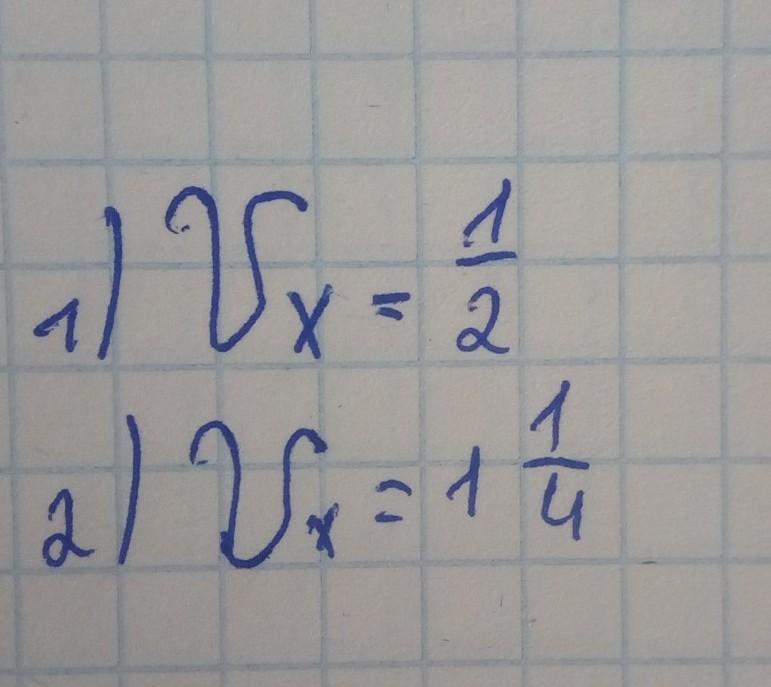 1) V_x = 1/2
2) V_x = 1 1/4